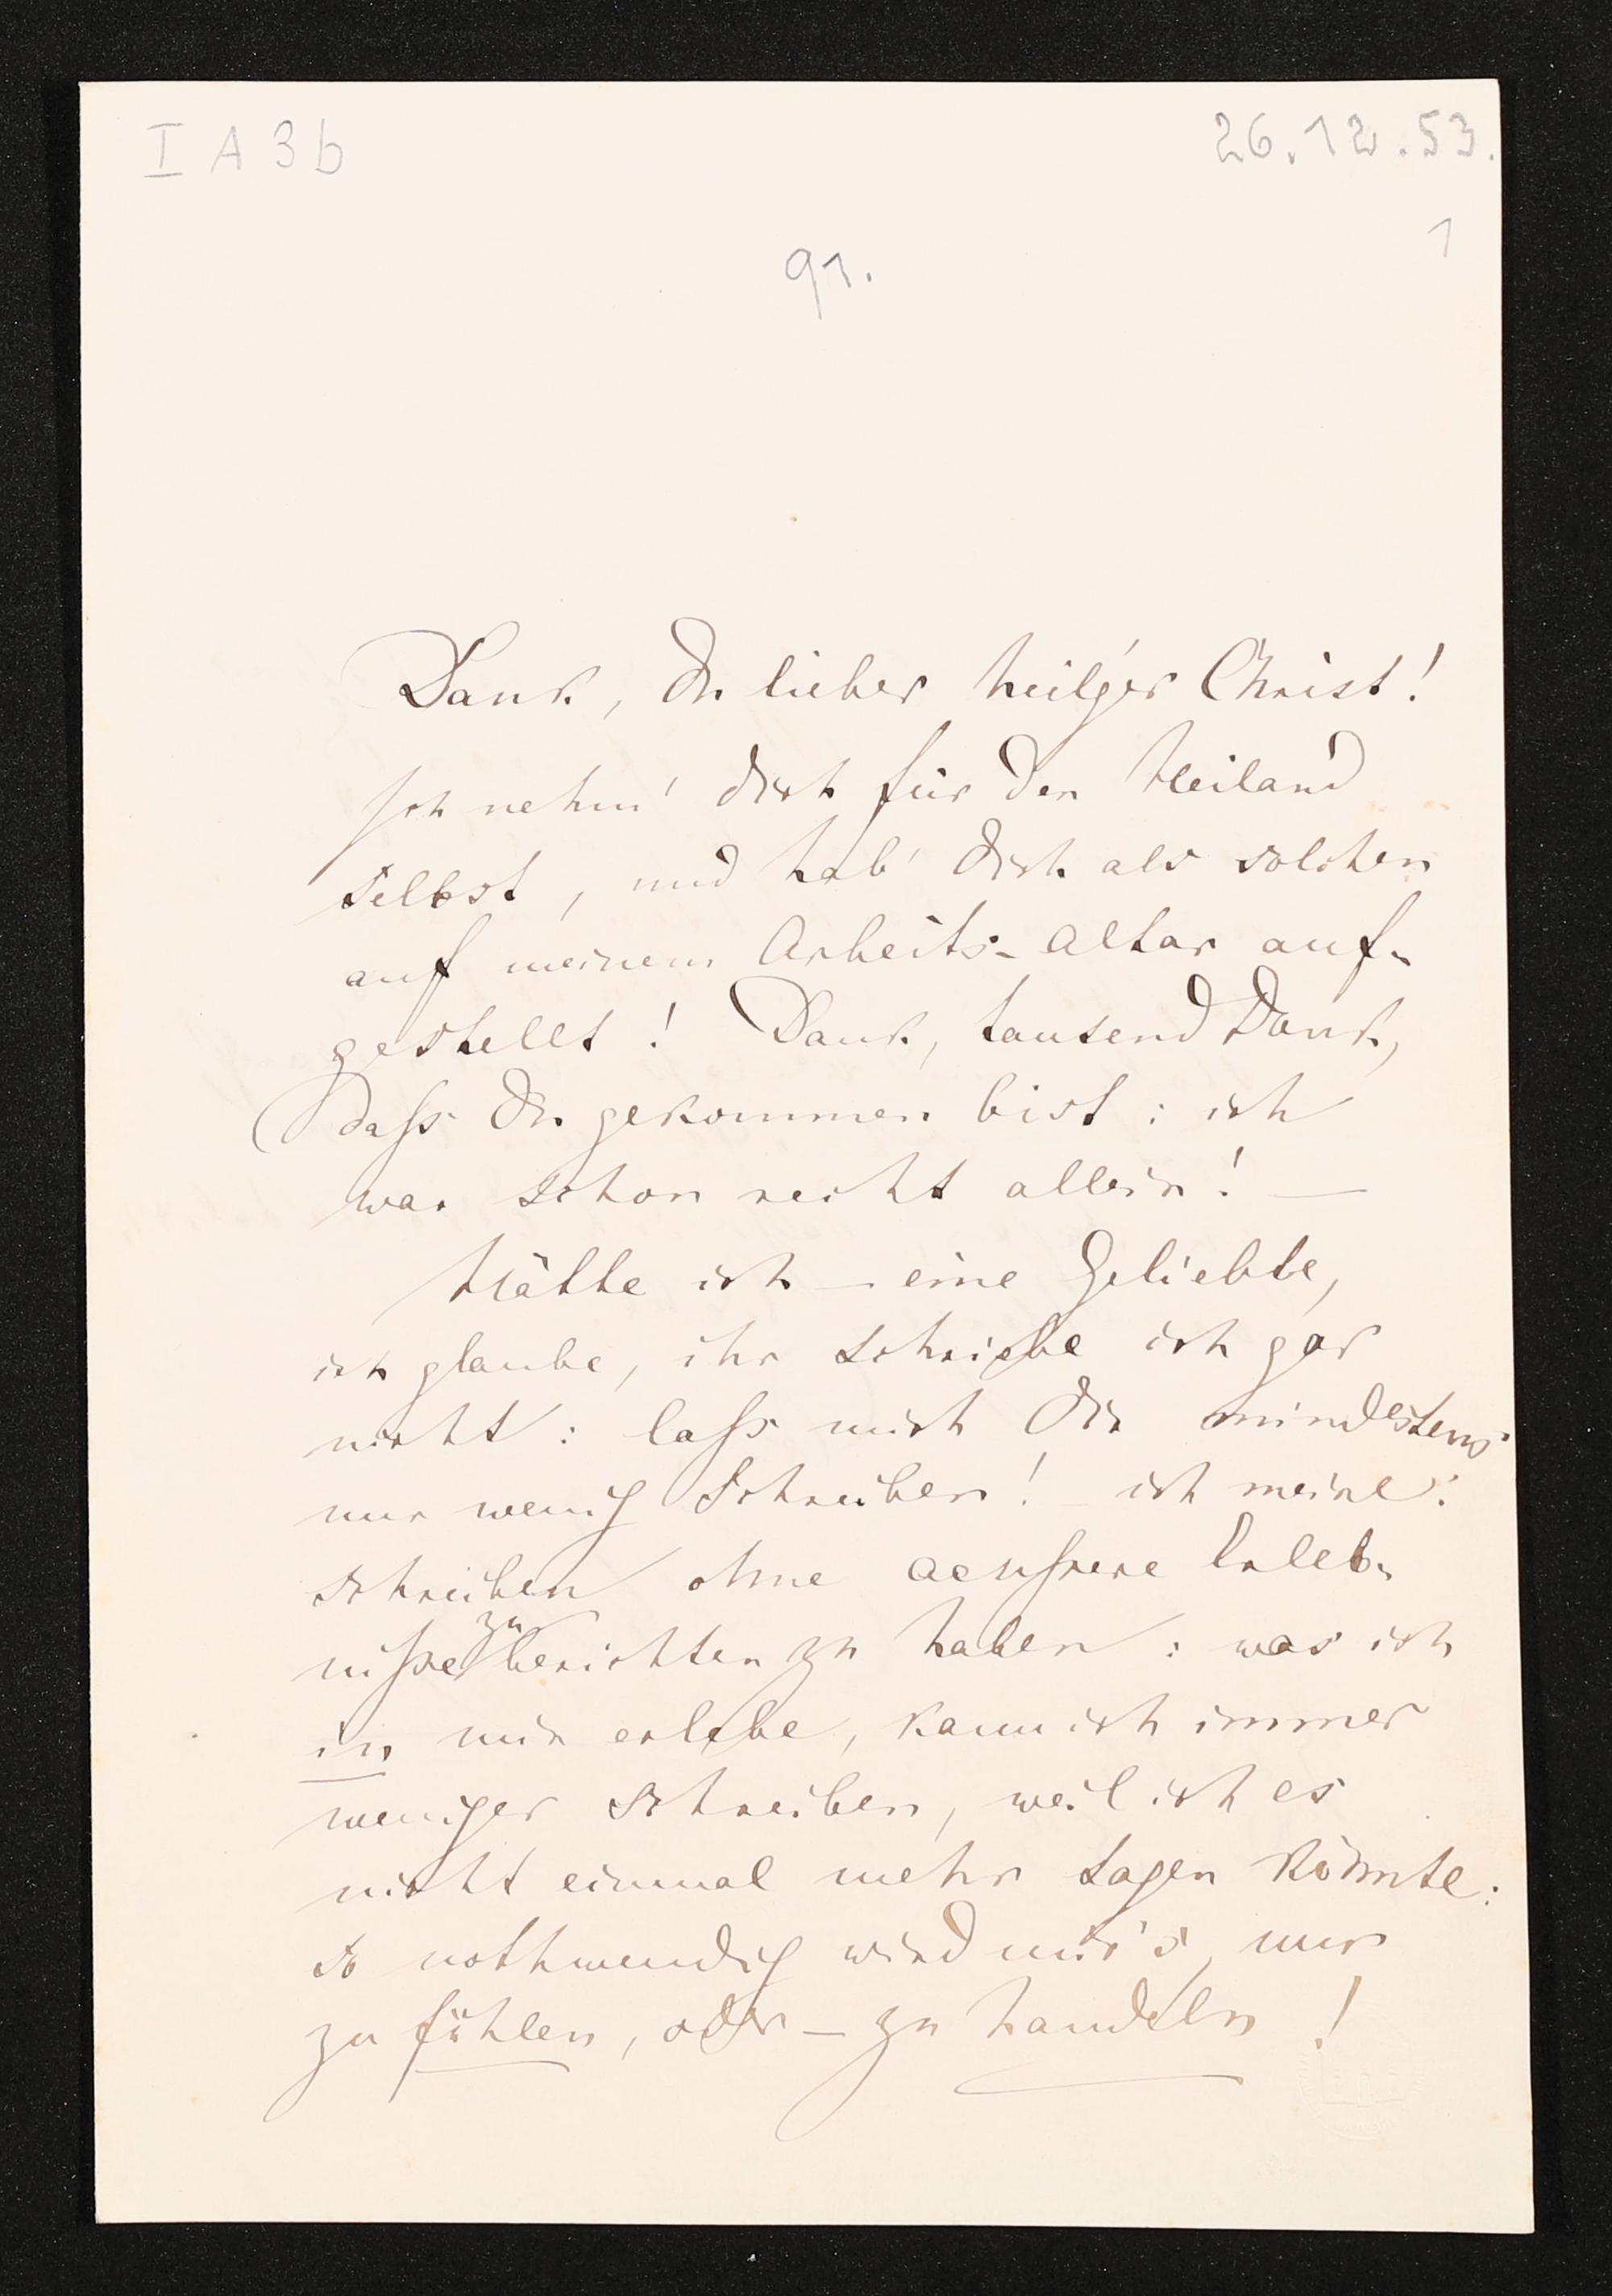 I A 3 b
26.12.53.
1
91.
Dank, du lieber heil'ger Christ!
Ich nehm' dich für den Heiland
selbst, und hab' dich als solchen
auf meinem Arbeits-Altar auf-
gestellt! Dank, tausend Dank,
dass du gekommen bist: ich
war schon recht allein! —
Hätte ich – eine Geliebte,
ich glaube, ihr schriebe ich gar
nicht: lass mich dir mindestens
nur wenig schreiben! – ich meine:
schreiben ohne aeussere Erleb-
nisse zu berichten zu haben: was ich
in mir erlebe, kann ich immer
weniger schreiben, weil ich es
nicht einmal mehr sagen könnte:
so nothwendig wird mir's, nur
zu fühlen, oder – zu handeln!